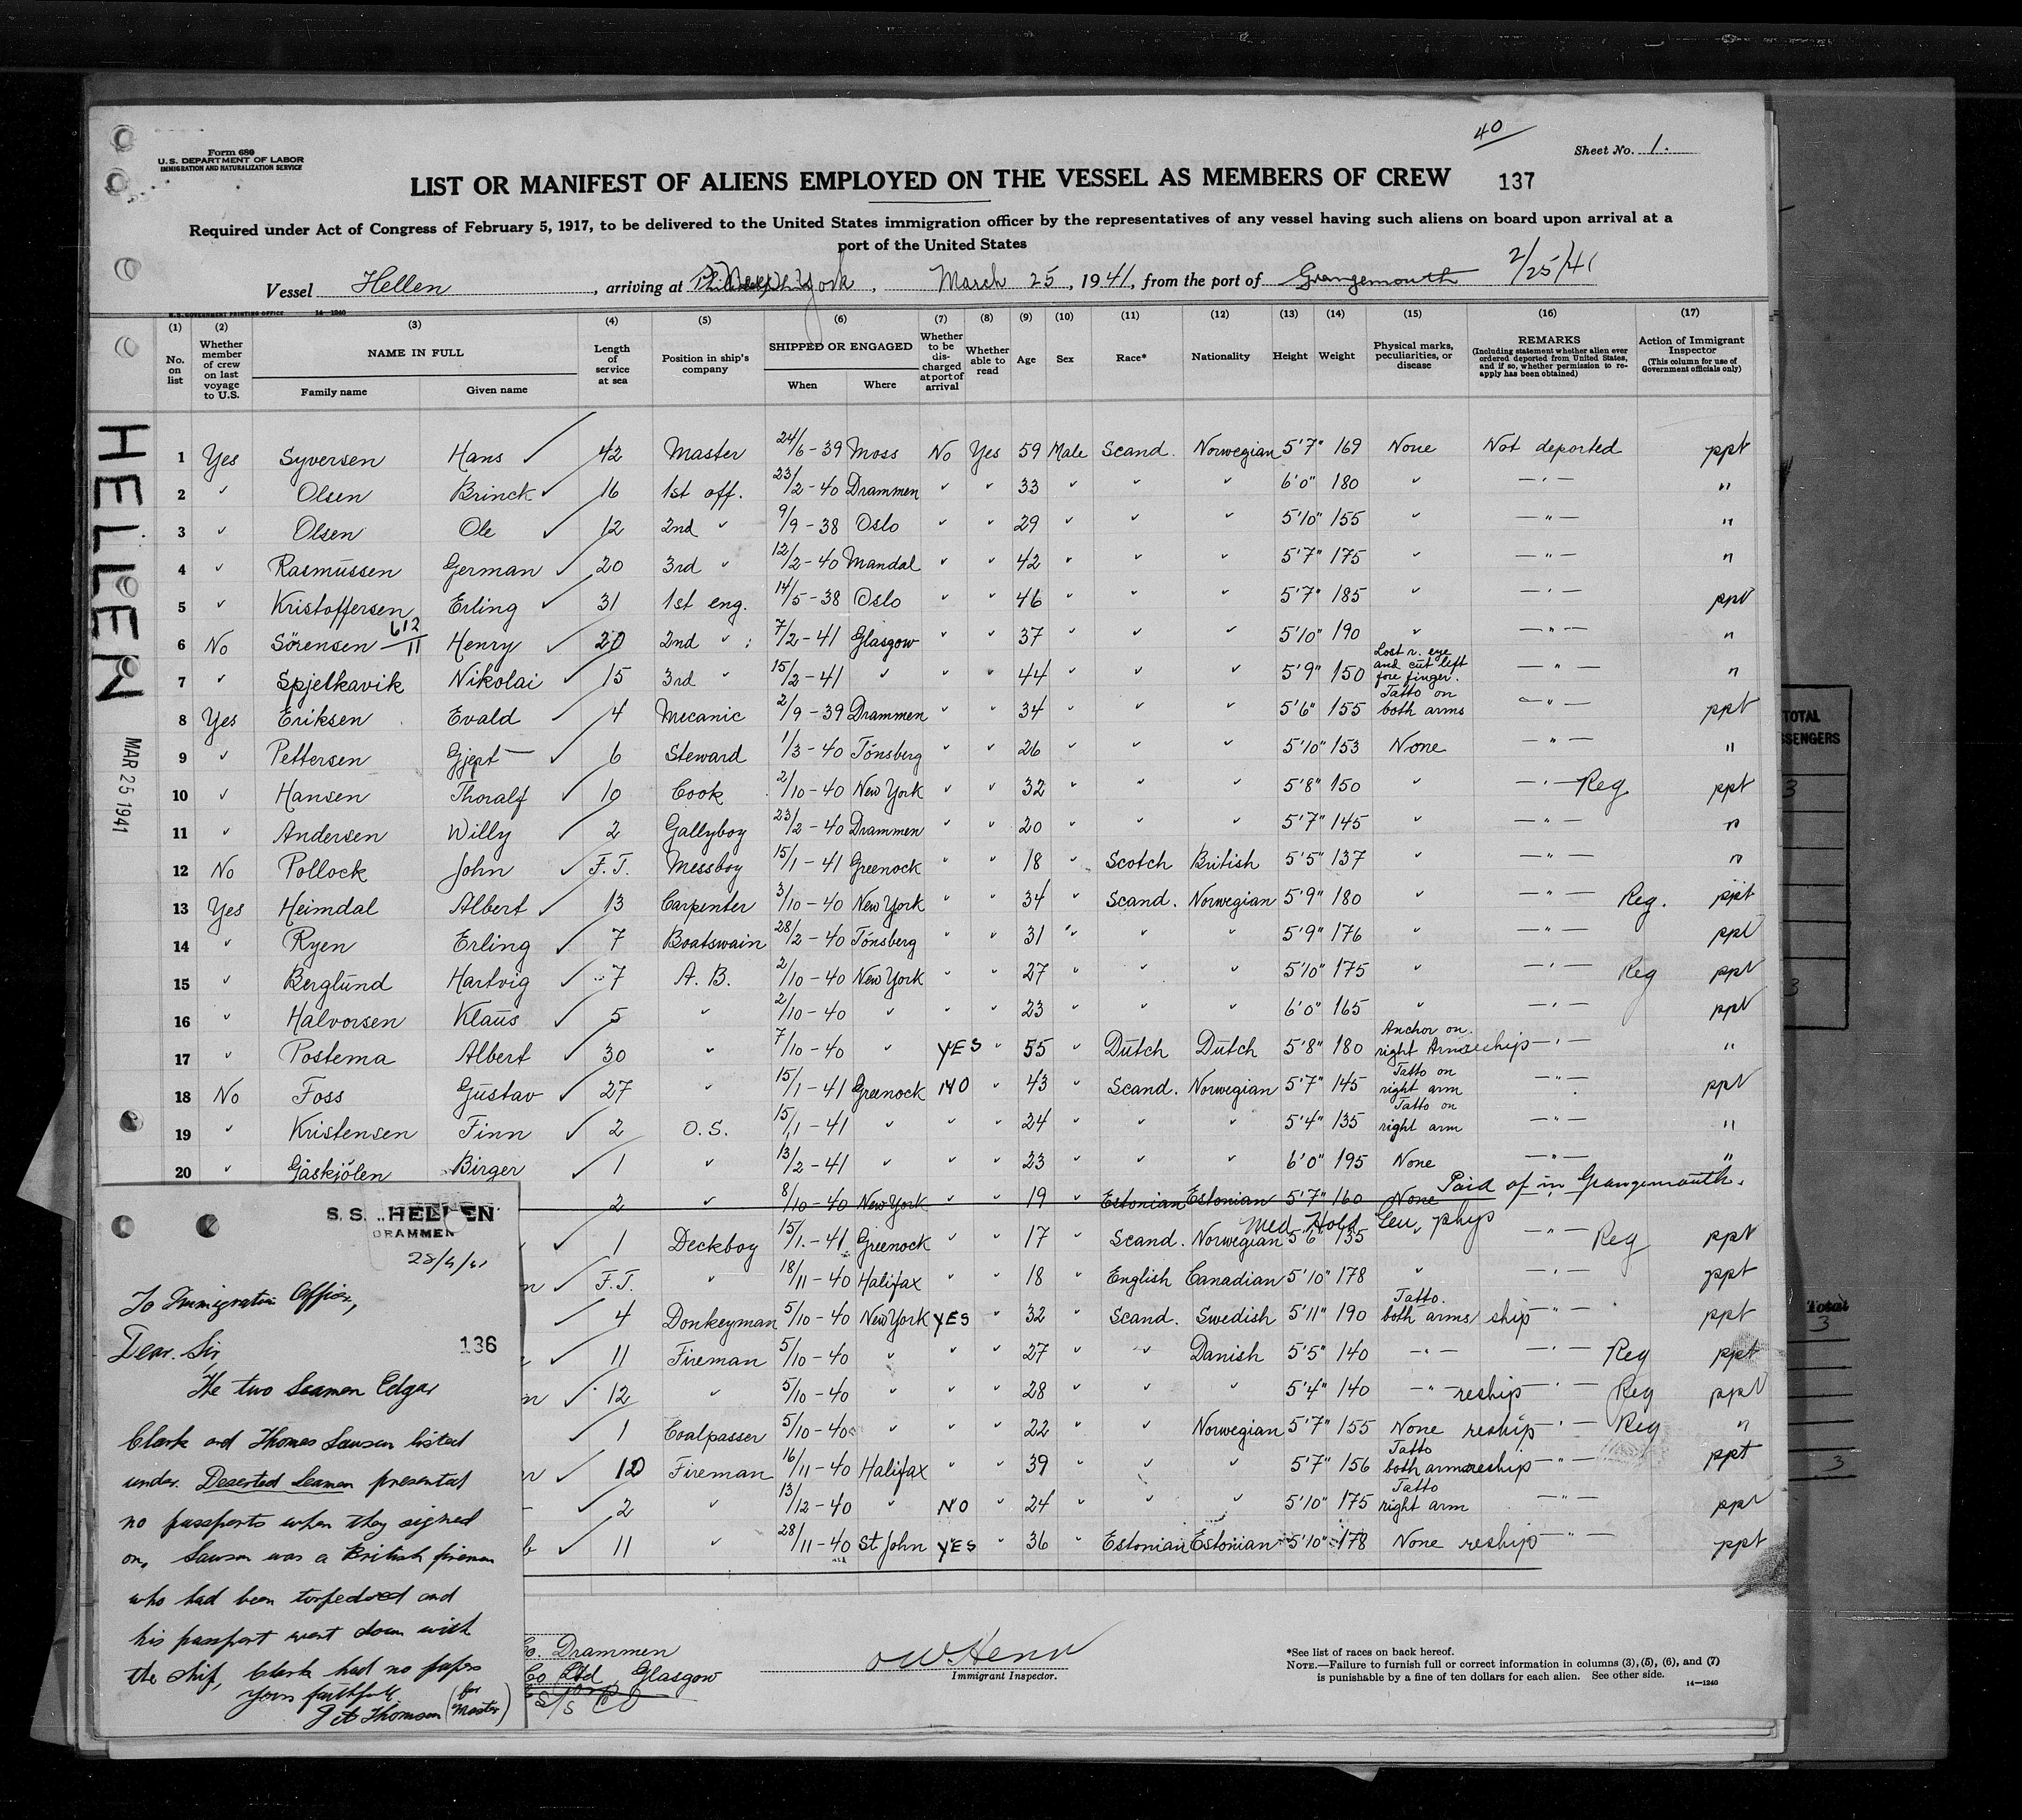 40
Form 680
U. S. DEPARTMENT OF LABOR
IMMIGRATION AND NATURALIZATION SERVICE
Sheet No. 1.
LIST OR MANIFEST OF ALIENS EMPLOYED ON THE VESSEL AS MEMBERS OF CREW 137
Required under Act of Congress of February 5, 1917, to be delivered to the United States immigration officer by the representatives of any vessel having such aliens on board upon arrival at a
port of the United States
Vessel Hellen, arriving at New York, March 25, 1941, from the port of Grangemouth 2/25/41
U.S. GOVERNMENT PRINTING OFFICE 14—1240
(1) (2) (3) (4) (5) (6) (7) (8) (9) (10) (11) (12) (13) (14) (15) (16) (17)
No. on list
Whether member of crew on last voyage to U.S.
NAME IN FULL
Family name
Given name
Length of service at sea
Position in ship's company
SHIPPED OR ENGAGED
When
Where
Whether to be discharged at port of arrival
Whether able to read
Age
Sex
Race*
Nationality
Height
Weight
Physical marks, peculiarities, or disease
REMARKS
(Including statement whether alien ever ordered deported from United States, and if so, whether permission to reapply has been obtained)
Action of Immigrant Inspector
(This column for use of Government officials only)
HELLEN
MAR 25 1941
1 Yes Syversen Hans ✓ 42 Master 24/6 - 39 Moss No Yes 59 Male Scand. Norwegian 5'7" 169 None Not deported ppt
2 " Olsen Brinck ✓ 16 1st off. 23/2 - 40 Drammen " " 33 " " " 6'0" 180 " — " — "
3 " Olsen Ole ✓ 12 2nd " 9/9 - 38 Oslo " " 29 " " " 5'10" 155 " — " — "
4 " Rasmussen German ✓ 20 3rd " 12/2 - 40 Mandal " " 42 " " " 5'7" 175 " — " — "
5 " Kristoffersen Erling ✓ 31 1st eng. 14/5 - 38 Oslo " " 46 " " " 5'7" 185 " — " — ppt
6 No Sörensen 612/11 Henry ✓ 20 2nd " 7/2 - 41 Glasgow " " 37 " " " 5'10" 190 " — " — "
7 " Spjelkavik Nikolai ✓ 15 3rd " 15/2 - 41 " " " 44 " " " 5'9" 150 Lost r. eye and cut left fore finger. — " — "
8 Yes Eriksen Evald ✓ 4 Mecanic 2/9 - 39 Drammen " " 34 " " " 5'6" 155 Tatto on both arms — " — ppt
9 " Pettersen Gjept ✓ 6 Steward 1/3 - 40 Tönsberg " " 26 " " " 5'10" 153 None — " — "
10 " Hansen Thoralf ✓ 10 Cook 2/10 - 40 New York " " 32 " " " 5'8" 150 " — " — Reg ppt
11 " Andersen Willy ✓ 2 Gallyboy 23/2 - 40 Drammen " " 20 " " " 5'7" 145 " — " — "
12 No Pollock John ✓ F. T. Messboy 15/1 - 41 Greenock " " 18 " Scotch British 5'5" 137 " — " — "
13 Yes Heimdal Albert ✓ 13 Carpenter 3/10 - 40 New York " " 34 " Scand. Norwegian 5'9" 180 " — " — Reg. ppt
14 " Ryen Erling ✓ 7 Boatswain 28/2 - 40 Tönsberg " " 31 " " " 5'9" 176 " — " — ppt
15 " Berglund Hartvig ✓ 7 A. B. 2/10 - 40 New York " " 27 " " " 5'10" 175 " — " — Reg ppt
16 " Halvorsen Klaus ✓ 5 " 2/10 - 40 " " " 23 " " " 6'0" 165 " — " — ppt
17 " Postema Albert ✓ 30 " 7/10 - 40 " YES " 55 " Dutch Dutch 5'8" 180 Anchor on right Arm reship — " — "
18 No Foss Gustav ✓ 27 " 15/1 - 41 Greenock NO " 43 " Scand. Norwegian 5'7" 145 Tatto on right arm — " — ppt
19 " Kristensen Finn ✓ 2 O. S. 15/1 - 41 " " " 24 " " " 5'4" 135 Tatto on right arm — " — "
20 " Gåskjölen Birger ✓ 1 " 13/2 - 41 " " " 23 " " " 6'0" 195 None — " — "
2 " 8/10 - 40 New York " " 19 " Estonian Estonian 5'7" 160 None Paid of in Grangemouth.
Med Hold phys
✓ 1 Deckboy 15/1 - 41 Greenock " " 17 " Scand. Norwegian 5'6" 135 " — " — Reg ppt
n ✓ F. T. " 18/11 - 40 Halifax " " 18 " English Canadian 5'10" 178 " — " — ppt
✓ 4 Donkeyman 5/10 - 40 New York YES " 32 " Scand. Swedish 5'11" 190 Tatto. both arms ship — " — ppt
✓ 11 Fireman 5/10 - 40 " " " 27 " " Danish 5'5" 140 — " — — " — Reg ppt
n ✓ 12 " 5/10 - 40 " " " 28 " " " 5'4" 140 — " — reship — " — Reg ppt
✓ 1 Coalpasser 5/10 - 40 " " " 22 " " Norwegian 5'7" 155 None reship — " — Reg "
✓ 10 Fireman 16/11 - 40 Halifax " " 39 " " " 5'7" 156 Tatto both arms reship — " — ppt
✓ 2 " 13/12 - 40 " NO " 24 " " " 5'10" 175 Tatto right arm — " — ppt
✓ 11 " 28/11 - 40 St John YES " 36 " Estonian Estonian 5'10" 178 None reship — " — ppt
S. S. HELLEN
DRAMMEN
28/4/41
To Immigration Officer,
Dear Sir
136
The two Seamen Edgar
Clark and Thomas Lawson listed
under Deserted Seamen presented
no passports when they signed
on, Lawson was a British fireman
who had been torpedoed and
his passport went down with
the ship, Clark had no papers
Yours faithfully
Thomson (for Master)
Co. Drammen
Co Ltd Glasgow
Immigrant Inspector.
*See list of races on back hereof.
NOTE.—Failure to furnish full or correct information in columns (3), (5), (6), and (7)
is punishable by a fine of ten dollars for each alien. See other side.
14—1240
TOTAL
SSENGERS
3
3
Total
3
3